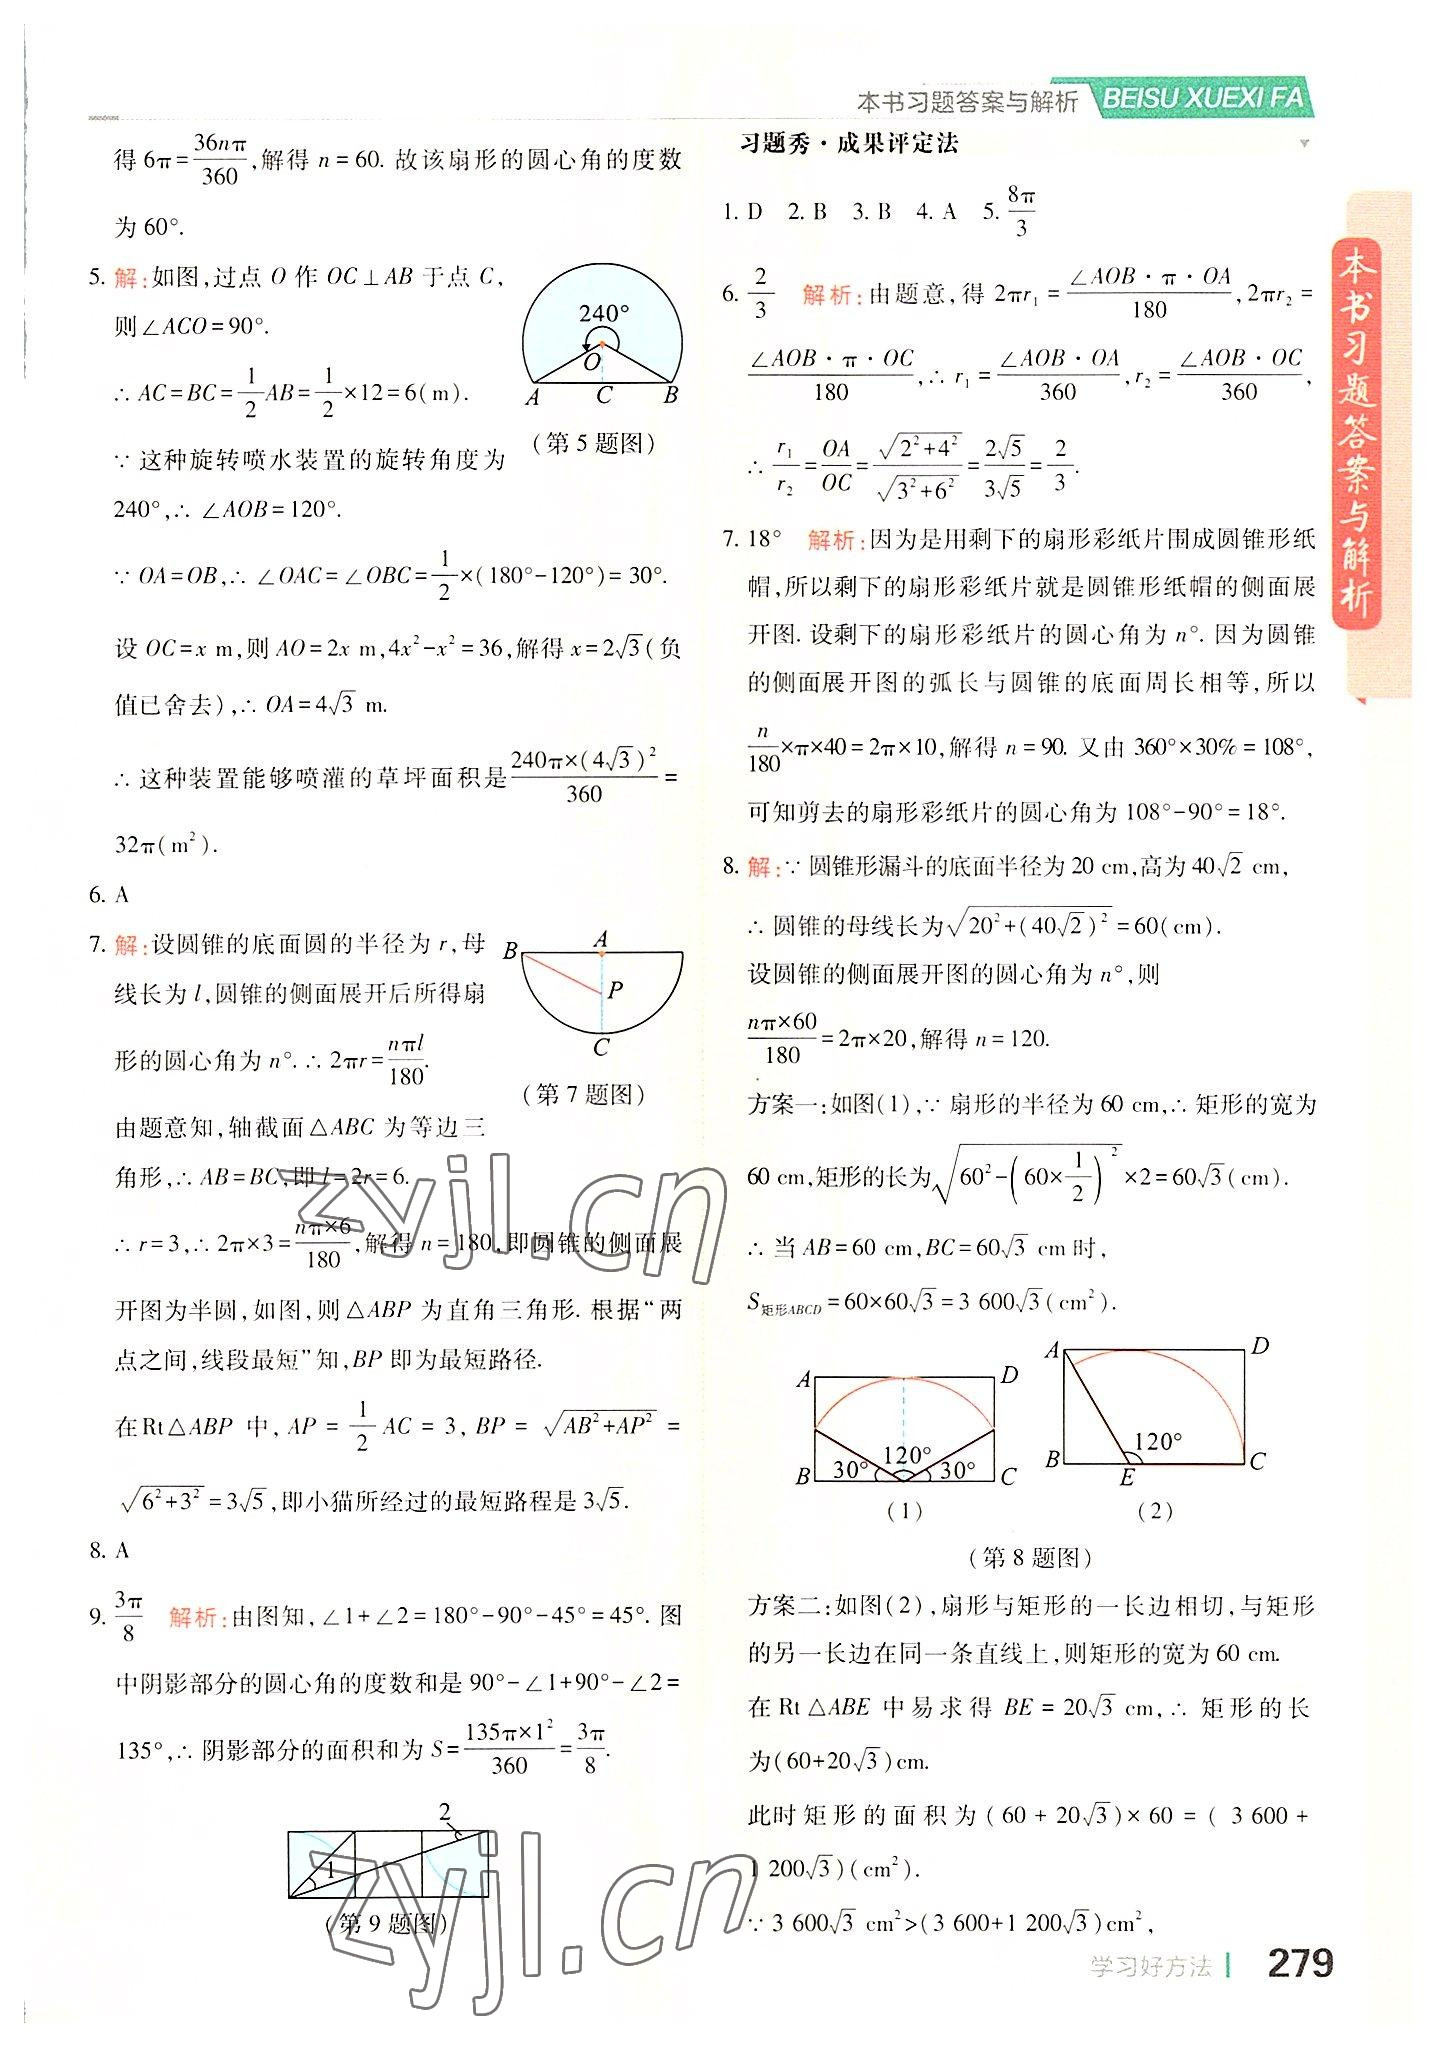 本书习题答案与解析 BEISU XUEXI FA
得 6π=36nπ/360,解得 n=60. 故该扇形的圆心角的度数
为 60°.
5. 解:如图,过点 O 作 OC⊥AB 于点 C,
则∠ACO=90°.
∴ AC=BC=1/2AB=1/2×12=6(m).
∵ 这种旋转喷水装置的旋转角度为
240°,∴ ∠AOB=120°.
240°
O
A C B
(第 5 题图)
∵ OA=OB,∴ ∠OAC=∠OBC=1/2×(180°-120°)=30°.
设 OC=x m,则 AO=2x m,4x²-x²=36,解得 x=2√3(负
值已舍去),∴ OA=4√3 m.
∴ 这种装置能够喷灌的草坪面积是240π×(4√3)²/360=
32π(m²).
6. A
7. 解:设圆锥的底面圆的半径为 r,母
线长为 l,圆锥的侧面展开后所得扇
形的圆心角为 n°.∴ 2πr=nπl/180.
由题意知,轴截面△ABC 为等边三
B A
P
C
(第 7 题图)
角形,∴ AB=BC,即 l=2r=6.
∴ r=3,∴ 2π×3=nπ×6/180,解得 n=180,即圆锥的侧面展
开图为半圆,如图,则△ABP 为直角三角形. 根据“两
点之间,线段最短”知,BP 即为最短路径.
在Rt△ABP 中, AP = 1/2 AC = 3, BP = √(AB²+AP²) =
√(6²+3²)=3√5,即小猫所经过的最短路程是 3√5.
8. A
9. 3π/8 解析:由图知,∠1+∠2=180°-90°-45°=45°. 图
中阴影部分的圆心角的度数和是 90°-∠1+90°-∠2=
135°,∴ 阴影部分的面积和为 S=135π×1²/360=3π/8.
2
1
(第 9 题图)
习题秀·成果评定法
1. D 2. B 3. B 4. A 5. 8π/3
6. 2/3 解析:由题意,得 2πr₁=∠AOB·π·OA/180,2πr₂=
∠AOB·π·OC/180,∴ r₁=∠AOB·OA/360,r₂=∠AOB·OC/360,
∴ r₁/r₂=OA/OC=√(2²+4²)/√(3²+6²)=2√5/3√5=2/3.
7. 18° 解析:因为是用剩下的扇形彩纸片围成圆锥形纸
帽,所以剩下的扇形彩纸片就是圆锥形纸帽的侧面展
开图. 设剩下的扇形彩纸片的圆心角为 n°. 因为圆锥
的侧面展开图的弧长与圆锥的底面周长相等,所以
n/180×π×40=2π×10,解得 n=90. 又由 360°×30%=108°,
可知剪去的扇形彩纸片的圆心角为 108°-90°=18°.
8. 解:∵ 圆锥形漏斗的底面半径为 20 cm,高为 40√2 cm,
∴ 圆锥的母线长为√(20²+(40√2)²)=60(cm).
设圆锥的侧面展开图的圆心角为 n°,则
nπ×60/180=2π×20,解得 n=120.
方案一:如图(1),∵ 扇形的半径为 60 cm,∴ 矩形的宽为
60 cm,矩形的长为√(60²-(60×1/2)²)×2=60√3(cm).
∴ 当 AB=60 cm,BC=60√3 cm 时,
S矩形ABCD=60×60√3=3 600√3(cm²).
A D
120°
30° 30°
B C
(1)
A D
120°
B E C
(2)
(第 8 题图)
方案二:如图(2),扇形与矩形的一长边相切,与矩形
的另一长边在同一条直线上,则矩形的宽为 60 cm.
在 Rt△ABE 中易求得 BE=20√3 cm,∴ 矩形的长
为(60+20√3)cm.
此时矩形的面积为 (60+20√3)×60=( 3 600+
1 200√3)(cm²).
∵ 3 600√3 cm²>(3 600+1 200√3)cm²,
本书习题答案与解析
学习好方法 279
zyjl.cn
zyjl.cn